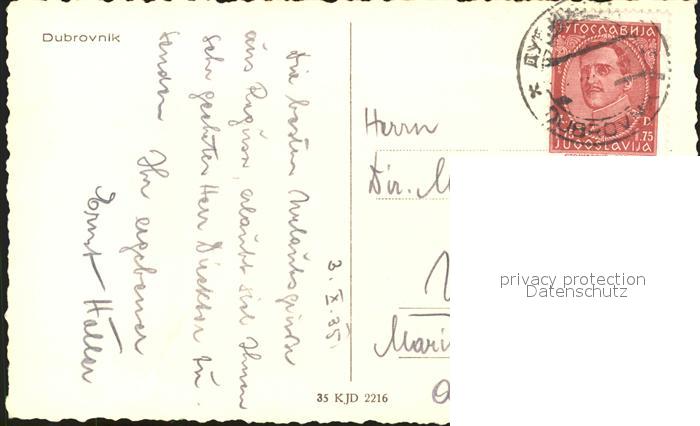 Dubrovnik
Die besten Urlaubsgrüsse
aus Ragusa, erlaubt sich Ihnen
sehr geehrter Herr Direktor zu
senden Ihr ergebener
Ernst Haller
3. X. 35.
35 KJD 2216
ЈУГОСЛАВИЈА
D.
1.75
JUGOSLAVIJA
DUBROVNIK
Herrn
Dir. M
Mari
privacy protection
Datenschutz